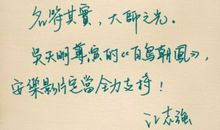 名符其實，大師之光。
吳天明導演的《百鳥朝鳳》，
安樂影片定當全力支持！
江志強